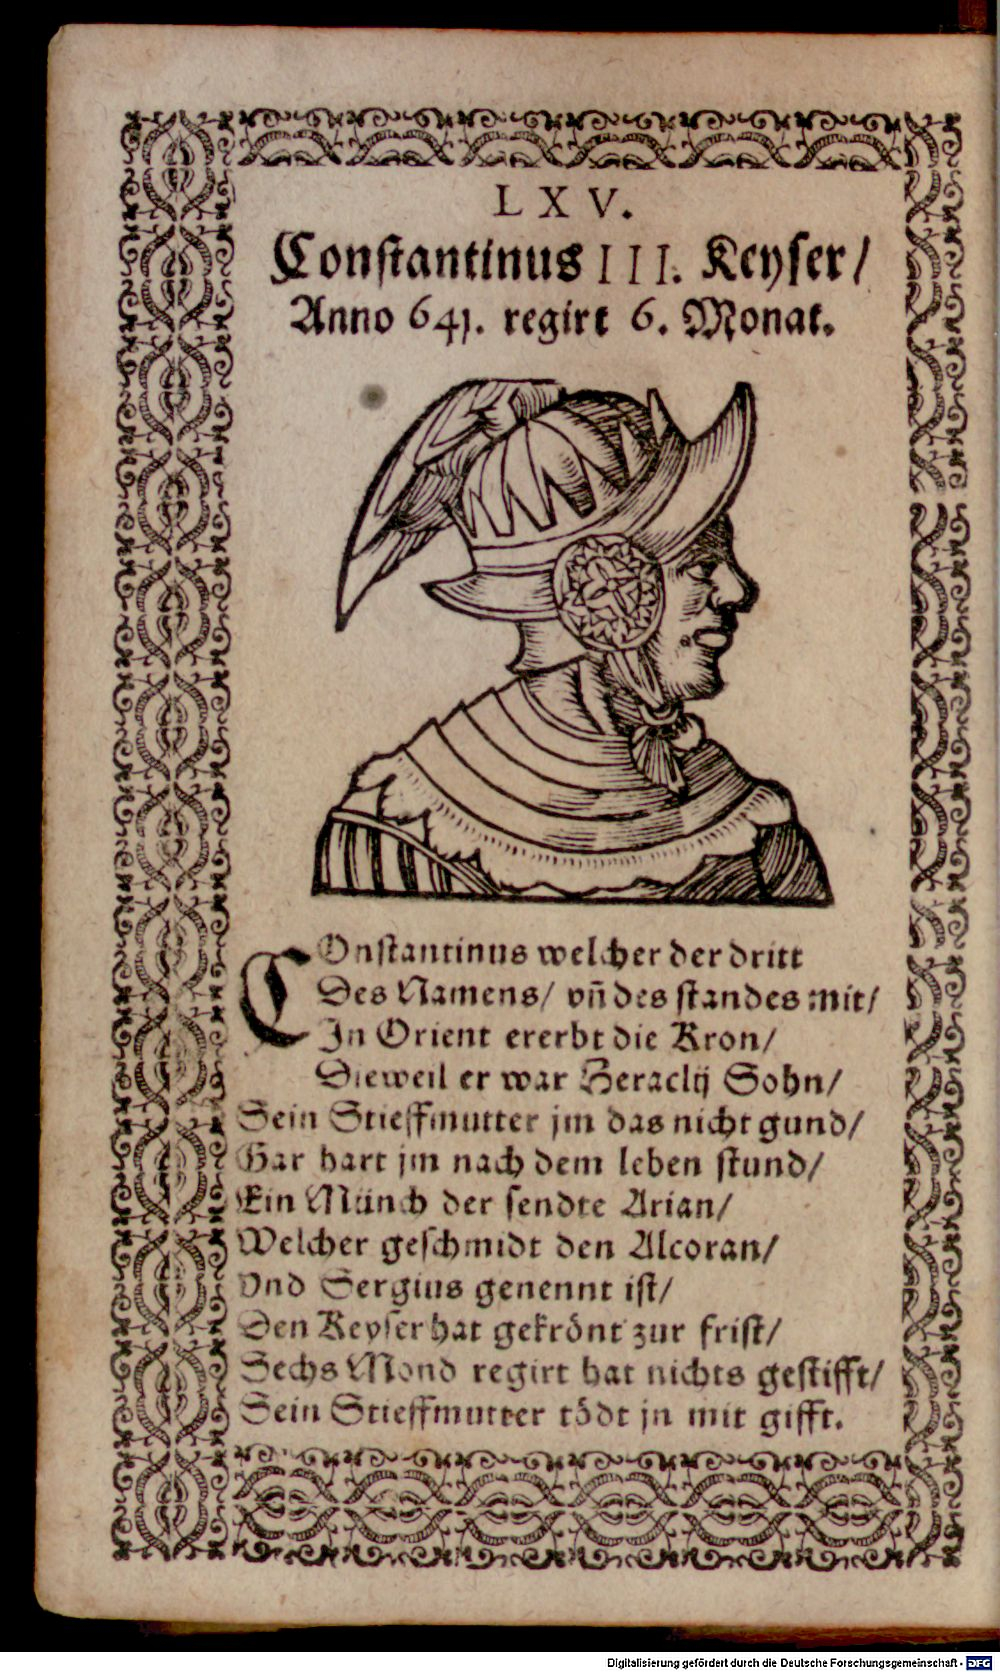 LXV.
Constantinus III. Keyser/
Anno 641. regirt 6. Monat.
COnstantinus welcher der dritt
Des Namens/ vñ des standes mit/
In Orient ererbt die Kron/
Dieweil er war Heraclij Sohn/
Sein Stieffmutter jm das nicht gund/
Gar hart jm nach dem leben stund/
Ein Münch der sendte Arian/
Welcher geschmidt den Alcoran/
Vnd Sergius genennt ist/
Den Keyser hat gekrönt zur frist/
Sechs Mond regirt hat nichts gestifft/
Sein Stieffmutter tödt jn mit gifft.
Digitalisierung gefördert durch die Deutsche Forschungsgemeinschaft - DFG